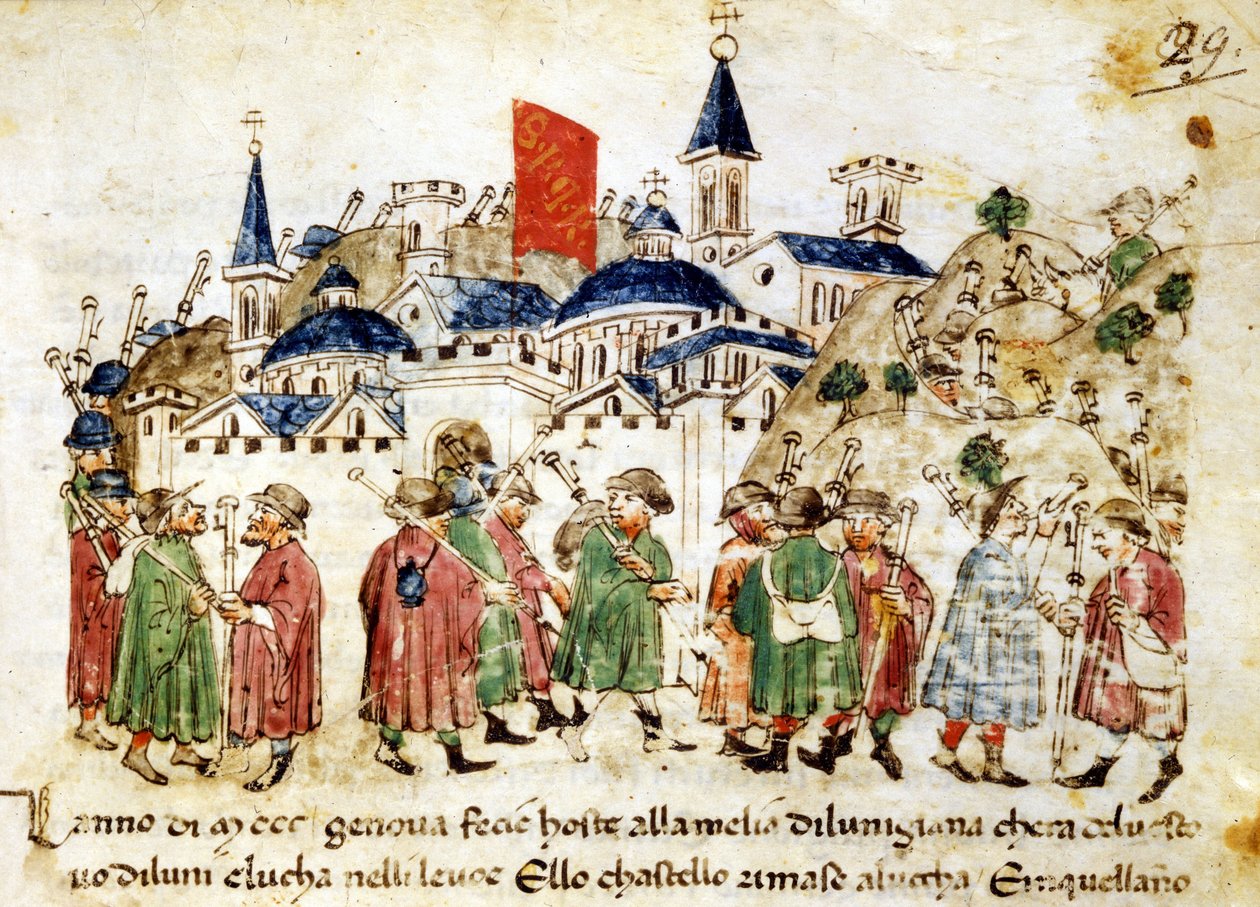 29.
S.P.Q.R.
Lanno di MCCC genova fecie hoste allamelia dilunigiana chera deluesco
uo diluni Elucha nelli leuoe Ello chastello rimase aluccha / Einquellano